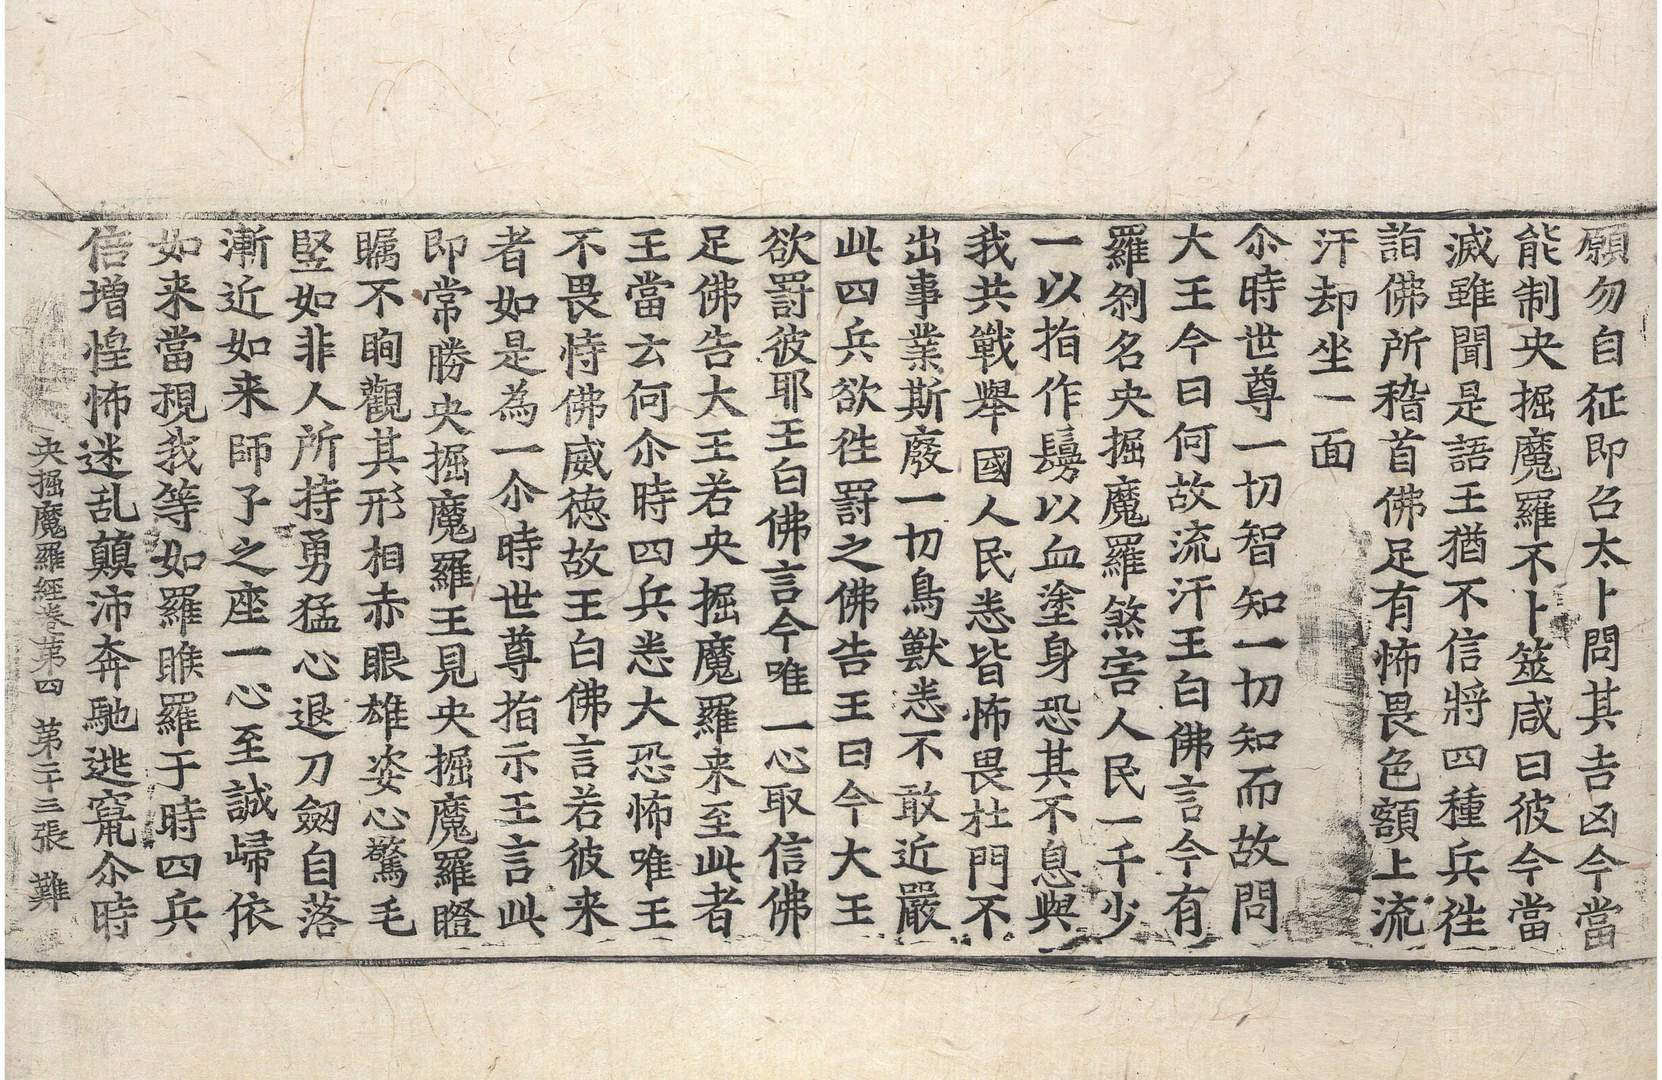 願勿自征即召太卜問其吉凶今當
能制央掘魔羅不卜筮咸曰彼今當
滅雖聞是語王猶不信將四種兵徃
詣佛所稽首佛足有怖畏色額上流
汗却坐一面
尒時世尊一切智知一切知而故問
大王今日何故流汗王白佛言今有
羅剎名央掘魔羅煞害人民一千少
一以指作鬘以血塗身恐其不息與
我共戰舉國人民悉皆怖畏杜門不
出事業斯廢一切鳥獸悉不敢近嚴
此四兵欲徃罸之佛告王曰今大王
欲罸彼耶王白佛言今唯一心取信佛
足佛告大王若央掘魔羅来至此者
王當云何尒時四兵悉大恐怖唯王
不畏恃佛威德故王白佛言若彼来
者如是為一尒時世尊指示王言此
即常勝央掘魔羅王見央掘魔羅瞪
矚不眴觀其形相赤眼雄姿心驚毛
竪如非人所持勇猛心退刀劒自落
漸近如来師子之座一心至誠歸依
如来當視我等如羅睺羅于時四兵
倍增惶怖迷乱顛沛奔馳逃竄尒時
央掘魔羅經卷第四 第二十三張 難